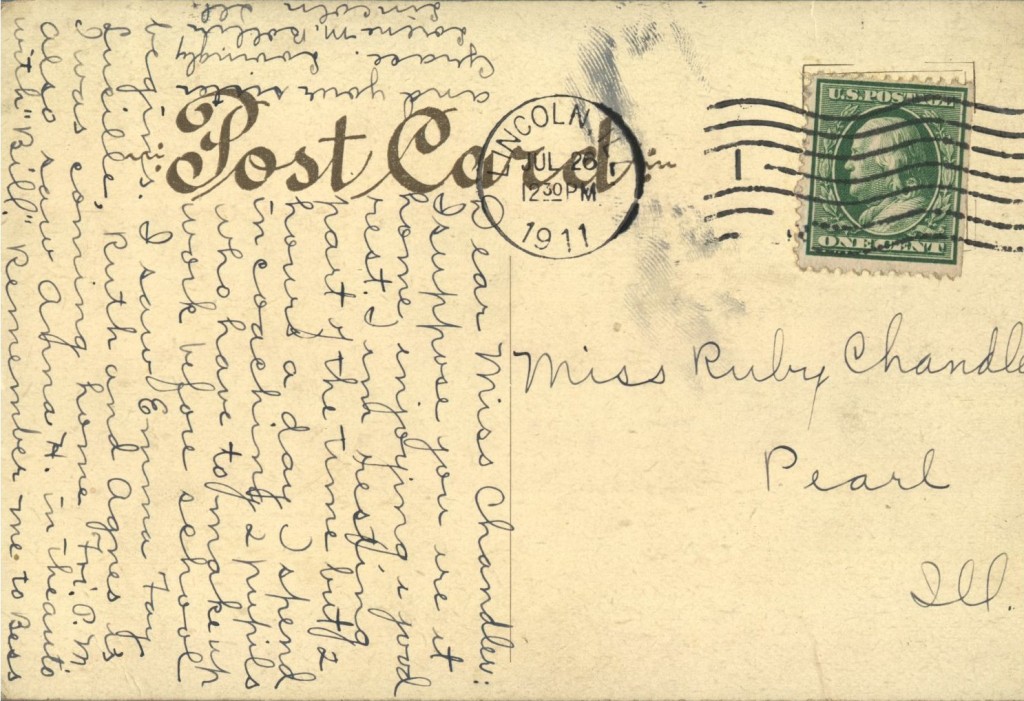 Post Card
LINCOLN
JUL 26
12 30 PM
1911
U.S. POSTAGE
ONE CENT
Miss Ruby Chandle
Pearl
Ill.
Dear Miss Chandler:
I suppose you are at
home injoying a good
rest. I im resting
part of the time but 2
hours a day I spend
in coaching 2 pupils
who have to make up
work before school
begins. I saw Emma Fay
Lucille, Ruth and Agnes
I was coming home Fri. P.M.
also saw Anna H. in the auto
with "Bill" Remember me to Bess
and your sister
Grace. Lovingly
Lorene M.
Lincoln
Ill.